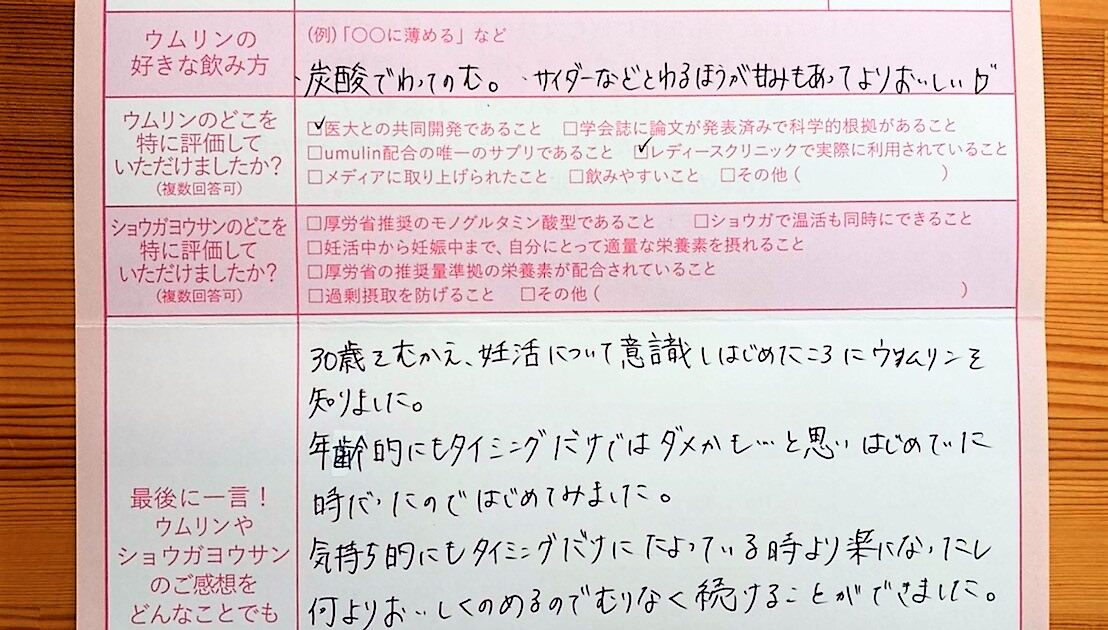 ウムリンの
好きな飲み方
(例)「〇〇に薄める」など
、炭酸でわってのむ。、サイダーなどとわるほうが甘みもあってよりおいしい
ウムリンのどこを
特に評価して
いただけましたか?
(複数回答可)
□医大との共同開発であること □学会誌に論文が発表済みで科学的根拠があること
□umulin配合の唯一のサプリであること □レディースクリニックで実際に利用されていること
□メディアに取り上げられたこと □飲みやすいこと □その他( )
ショウガヨウサンのどこを
特に評価して
いただけましたか?
(複数回答可)
□厚労省推奨のモノグルタミン酸型であること □ショウガで温活も同時にできること
□妊活中から妊娠中まで、自分にとって適量な栄養素を摂れること
□厚労省の推奨量準拠の栄養素が配合されていること
□過剰摂取を防げること □その他( )
最後に一言!
ウムリンや
ショウガヨウサン
のご感想を
どんなことでも
30歳をむかえ、妊活について意識しはじめたころにウムリンを
知りました。
年齢的にもタイミングだけではダメかも…と思いはじめていた
時だったのではじめてみました。
気持ち的にもタイミングだけにたよっている時より楽になったし
何よりおいしくのめるのでむりなく続けることができました。